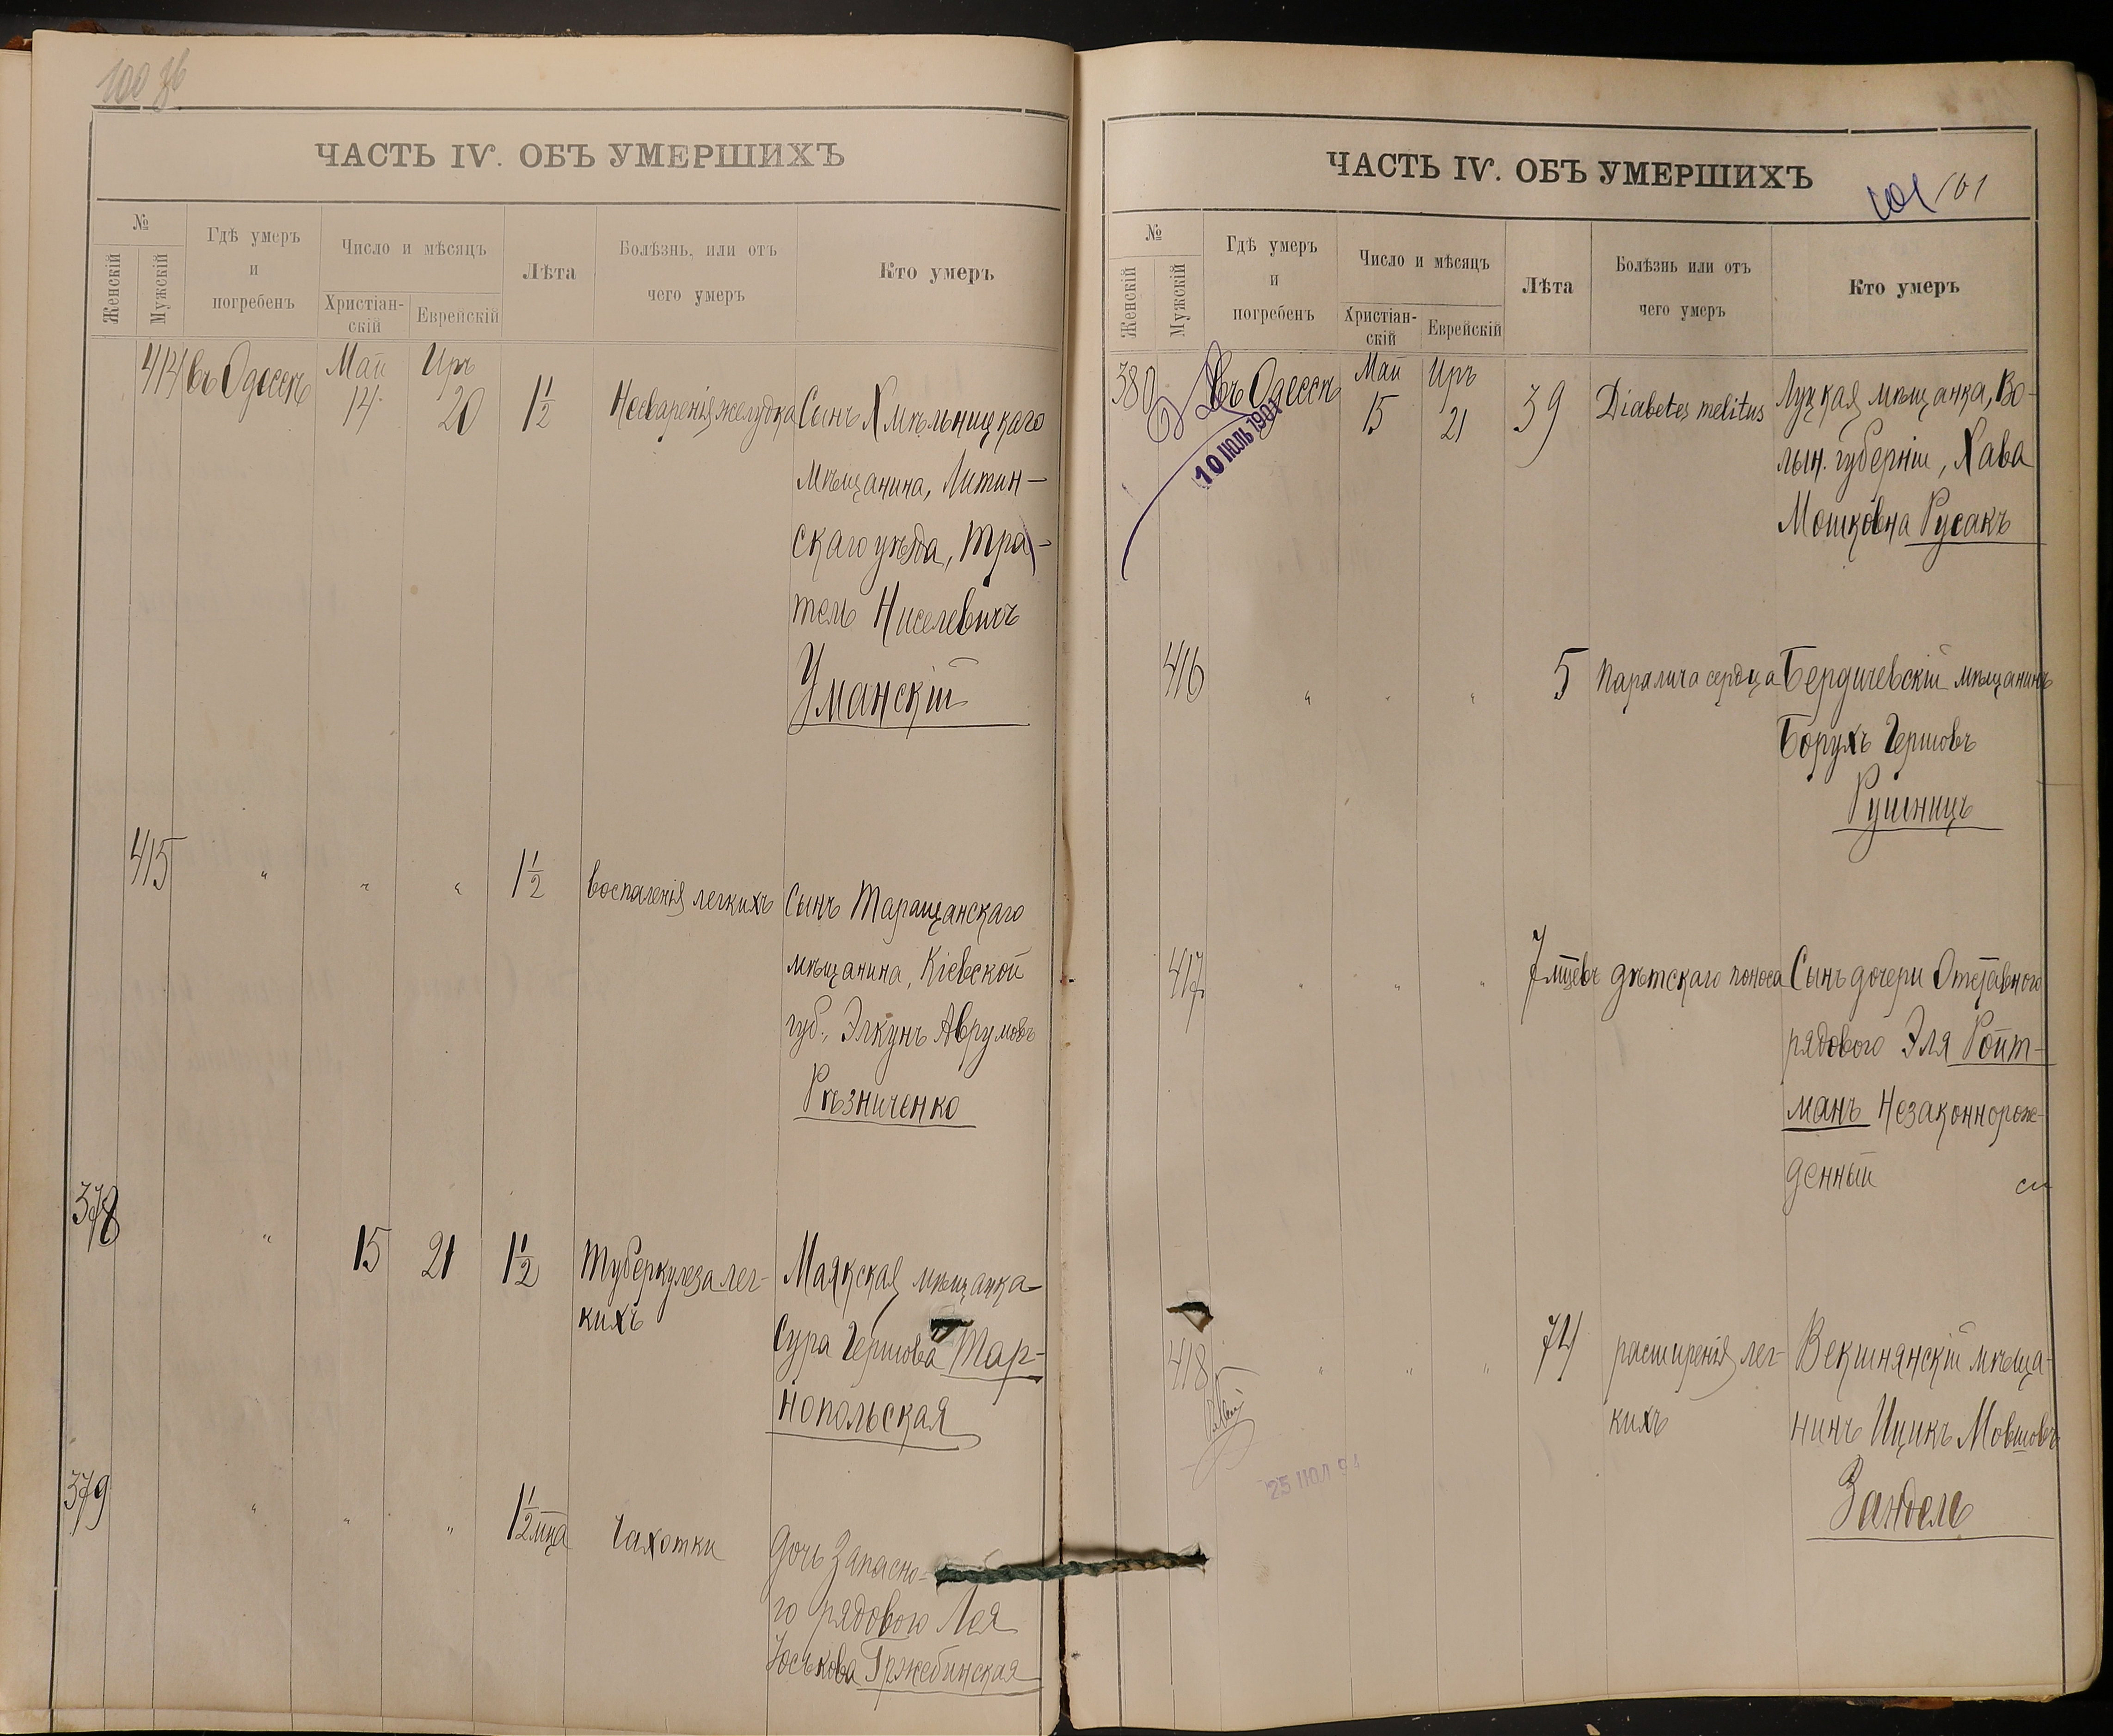 100 об
ЧАСТЬ IV. ОБЪ УМЕРШИХЪ
№
Женскій
Мужскій
Гдѣ умеръ
и
погребенъ
Число и мѣсяцъ
Христіан-
скій
Еврейскій
Лѣта
Болѣзнь, или отъ
чего умеръ
Кто умеръ
414 въ Одессѣ Май 14 Иръ 20 1½ Несваренія желудка Сынъ Хмѣльницкаго
мѣщанина, Литин-
скаго уѣзда, Тра-
тель Нисілевичъ
Уманскій
415 " " " 1½ воспаленія легкихъ Сынъ Таращанскаго
мѣщанина, Кіевской
губ., Элкунъ Аврумовъ
Рѣзниченко
378 " 15 21 1½ Туберкулеза лег- Маякская мѣщанка
кихъ Сура Гершова Тар-
нопольская
379 " " " 1½ мца Чахотки Дочь Запасно-
го рядового Лея
Іоськова Гржебинская
ЧАСТЬ IV. ОБЪ УМЕРШИХЪ
101 101
№
Женскій
Мужскій
Гдѣ умеръ
и
погребенъ
Число и мѣсяцъ
Христіан-
скій
Еврейскій
Лѣта
Болѣзнь или отъ
чего умеръ
Кто умеръ
380 въ Одессѣ Май 15 Иръ 21 39 Diabetes melitus Луцкая мѣщанка, Во-
лын. губерніи, Хава
Мошковна Русакъ
10 ІЮЛЬ 1901
416 " " " 5 Паралича сердца Бердичевскій мѣщанинъ
Борухъ Гершовъ
Рушницъ
417 " " " 7 мцевъ дѣтскаго поноса Сынъ дочери Отставного
рядового Эля Ройт-
манъ Незаконнорож-
денный
418 " " " 74 расширенія лег- Векшнянскій мѣща-
кихъ нинъ Ицикъ Мовшовъ
Зандель
25 ІЮЛ 94